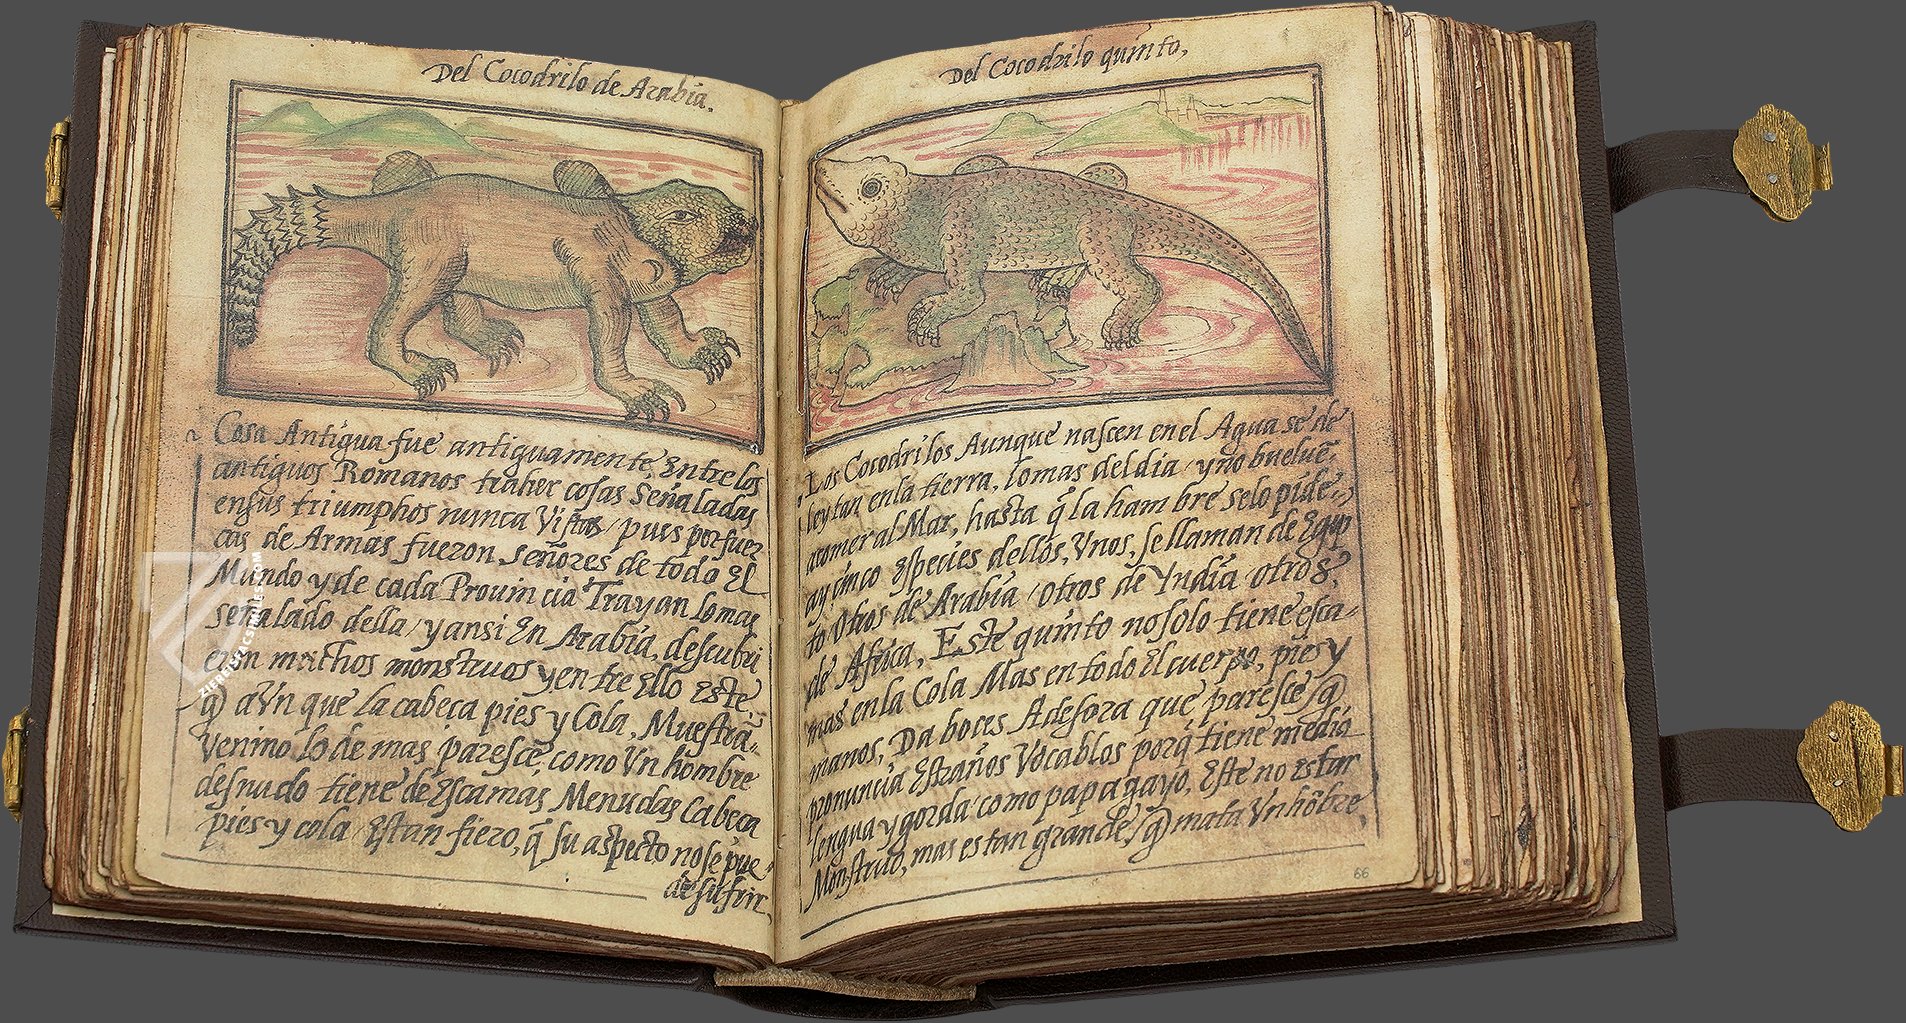 Del Cocodrilo de Arabia.
Cosa Antigua fue antiguamente Entre los
antiguos Romanos traher cosas Señaladas
ensus triumphos nunca Vistas / pues por fuer
cas de Armas fueron, señores de todo El
Mundo y de cada Prouincia Trayan lo mas
señalado della / y ansi En Arabia, descubri
eron muchos monstruos y entre Ello Este
q̃ aVn que la cabeca pies y Cola, Muestrã
Venino lo de mas paresce, como Vn hombre
desnudo tiene de Escamas Menudas Cabeca
pies y cola / Es tan fiero, q̃ su aspecto no se pue
de sufrir,
Del Cocodrilo quinto,
Los Cocodrilos Aunque nascen en el Agua se de
leytan en la tierra, lo mas del dia / y no bueluē,
acomer al Mar, hasta q̃ la ham bre se lo pide,
ay cinco Especies dellos, Vnos, se llaman de Egip
to, Otros de Arabia / Otros de Yndia otros,
de Africa, Este quinto no solo tiene esca-
mas en la Cola Mas en todo El cuerpo, pies y
manos, Da boces A desora que paresce / q̃
pronuncia Estraños Vocablos porq̃ tiene media
lengua y gorda como papagayo, Este no es tan
Monstruo, mas es tan grande, / q̃ mata Vn hõbre,
66
ZIEREISFACSIMILES.COM